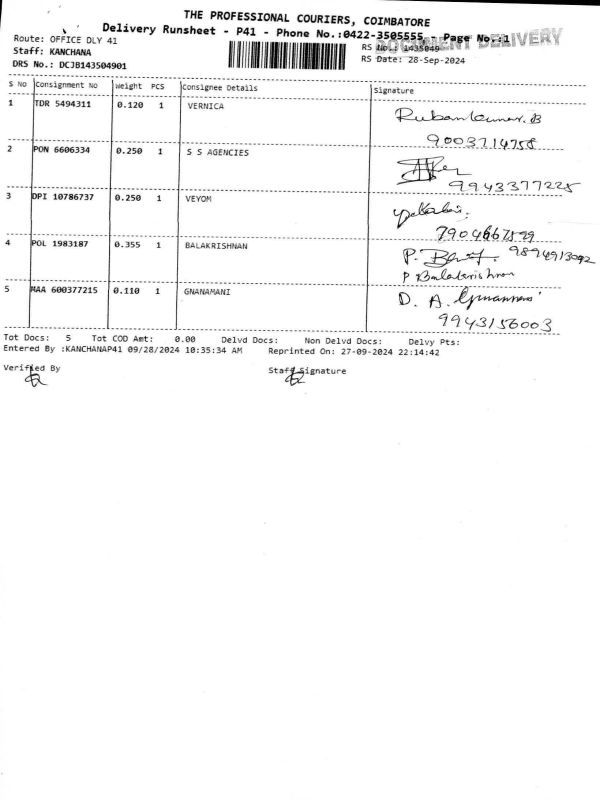 THE PROFESSIONAL COURIERS, COIMBATORE
Delivery Runsheet - P41 - Phone No.:0422-3505555 Page No.:1
DOCUMENT DELIVERY
Route: OFFICE DLY 41
RS No.: 1435049
Staff: KANCHANA
RS Date: 28-Sep-2024
DRS No.: DCJB143504901
S No Consignment No Weight PCS Consignee Details Signature
1 TDR 5494311 0.120 1 VERNICA Rubankumar.B
9003714758
2 PON 6606334 0.250 1 S S AGENCIES
9943377225
3 DPI 10786737 0.250 1 VEYOM
7904667599
4 POL 1983187 0.355 1 BALAKRISHNAN P. 9894913092
P Balakrishnan
5 MAA 600377215 0.110 1 GNANAMANI D. A. Gnanamani
9943156003
Tot Docs: 5 Tot COD Amt: 0.00 Delvd Docs: Non Delvd Docs: Delvy Pts:
Entered By :KANCHANAP41 09/28/2024 10:35:34 AM Reprinted On: 27-09-2024 22:14:42
Verified By Staff Signature